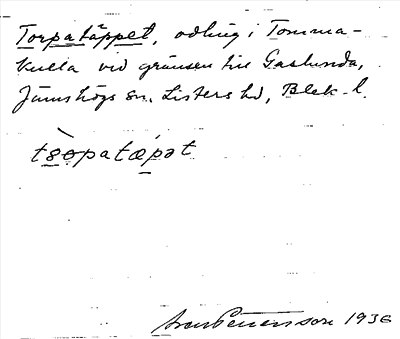 Torpatäppet, odling i Tomma-
kulla vid gränsen till Gaslunda,
Jämshögs sn. Listers hd, Blek. l.
tsopatæpət
Pettersson 1936